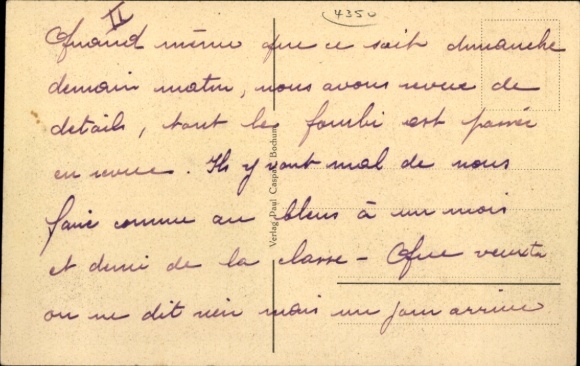 II
4350
Quand même que ce soit dimanche
demain matin, nous avons revue de
détails, tout le fourbi est passée
en revue. Ils y vont mal de nous
faire comme au bleus à un mois
et demi de la classe - Que veux tu
on ne dit rien mais un jour arrive
Verlag Paul Caspar, Bochum